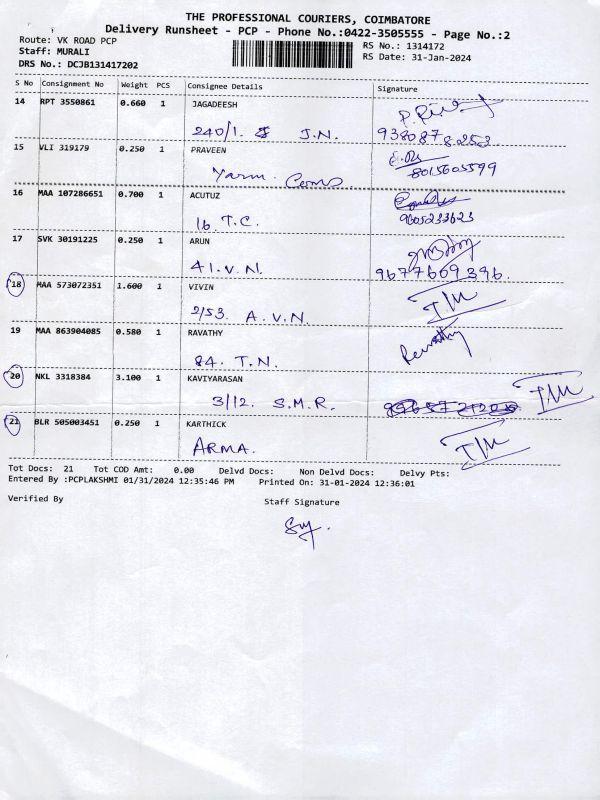 THE PROFESSIONAL COURIERS, COIMBATORE
Delivery Runsheet - PCP - Phone No.:0422-3505555 - Page No.:2
Route: VK ROAD PCP
RS No.: 1314172
Staff: MURALI
RS Date: 31-Jan-2024
DRS No.: DCJB131417202
S No Consignment No Weight PCS Consignee Details Signature
14 RPT 3550861 0.660 1 JAGADEESH
240/1. J.N. 938087 8253
15 VLI 319179 0.250 1 PRAVEEN
Yarm. Coms 8015605599
16 MAA 107286651 0.700 1 ACUTUZ
16 T.C. 9605233623
17 SVK 30191225 0.250 1 ARUN
41. V.N. 9677669396.
18 MAA 573072351 1.600 1 VIVIN
2/53. A.V.N. T/M
19 MAA 863904085 0.580 1 RAVATHY
84. T.N. Revathy
20 NKL 3318384 3.100 1 KAVIYARASAN
3/12. S.M.R. T/M
21 BLR 505003451 0.250 1 KARTHICK
ARMA. T/M
Tot Docs: 21 Tot COD Amt: 0.00 Delvd Docs: Non Delvd Docs: Delvy Pts:
Entered By :PCPLAKSHMI 01/31/2024 12:35:46 PM Printed On: 31-01-2024 12:36:01
Verified By Staff Signature